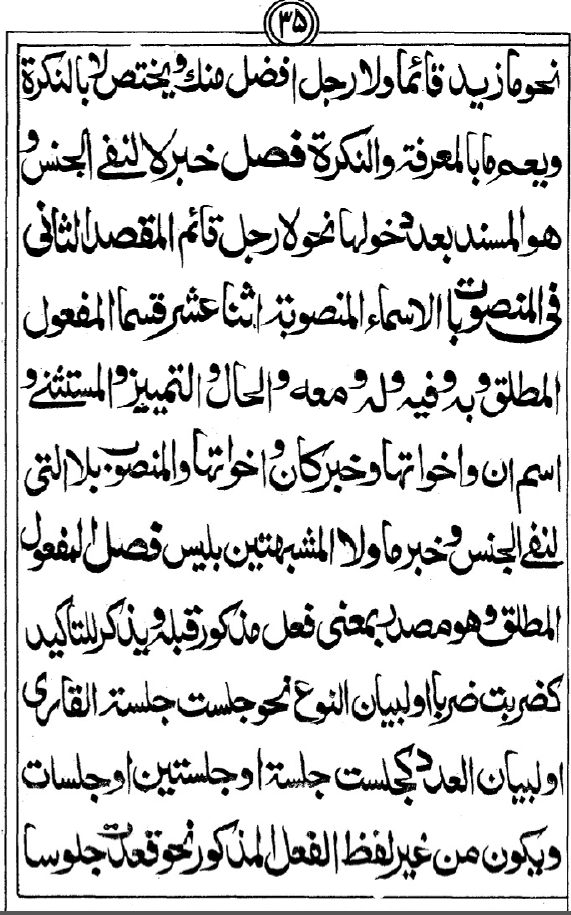 ۳۵
نحو ما زيد قائما ولا رجل افضل منك ويختص لا بالنكرة
ويعم ما بالمعرفة والنكرة فصل خبر لا لنفي الجنس و
هو المسند بعد دخولها نحو لا رجل قائم المقصد الثاني
في المنصوبات الاسماء المنصوبة اثنا عشر قسما المفعول
المطلق وبه وفيه وله ومعه والحال والتمييز والمستثنى و
اسم ان واخواتها وخبر كان واخواتها والمنصوب بلا التي
لنفي الجنس وخبر ما ولا المشبهتين بليس فصل المفعول
المطلق وهو مصدر بمعنى فعل مذكور قبله ويذكر للتاكيد
كضربت ضربا او لبيان النوع نحو جلست جلسة القاري
او لبيان العدد كجلست جلسة او جلستين او جلسات
ويكون من غير لفظ الفعل المذكور نحو قعدت جلوسا